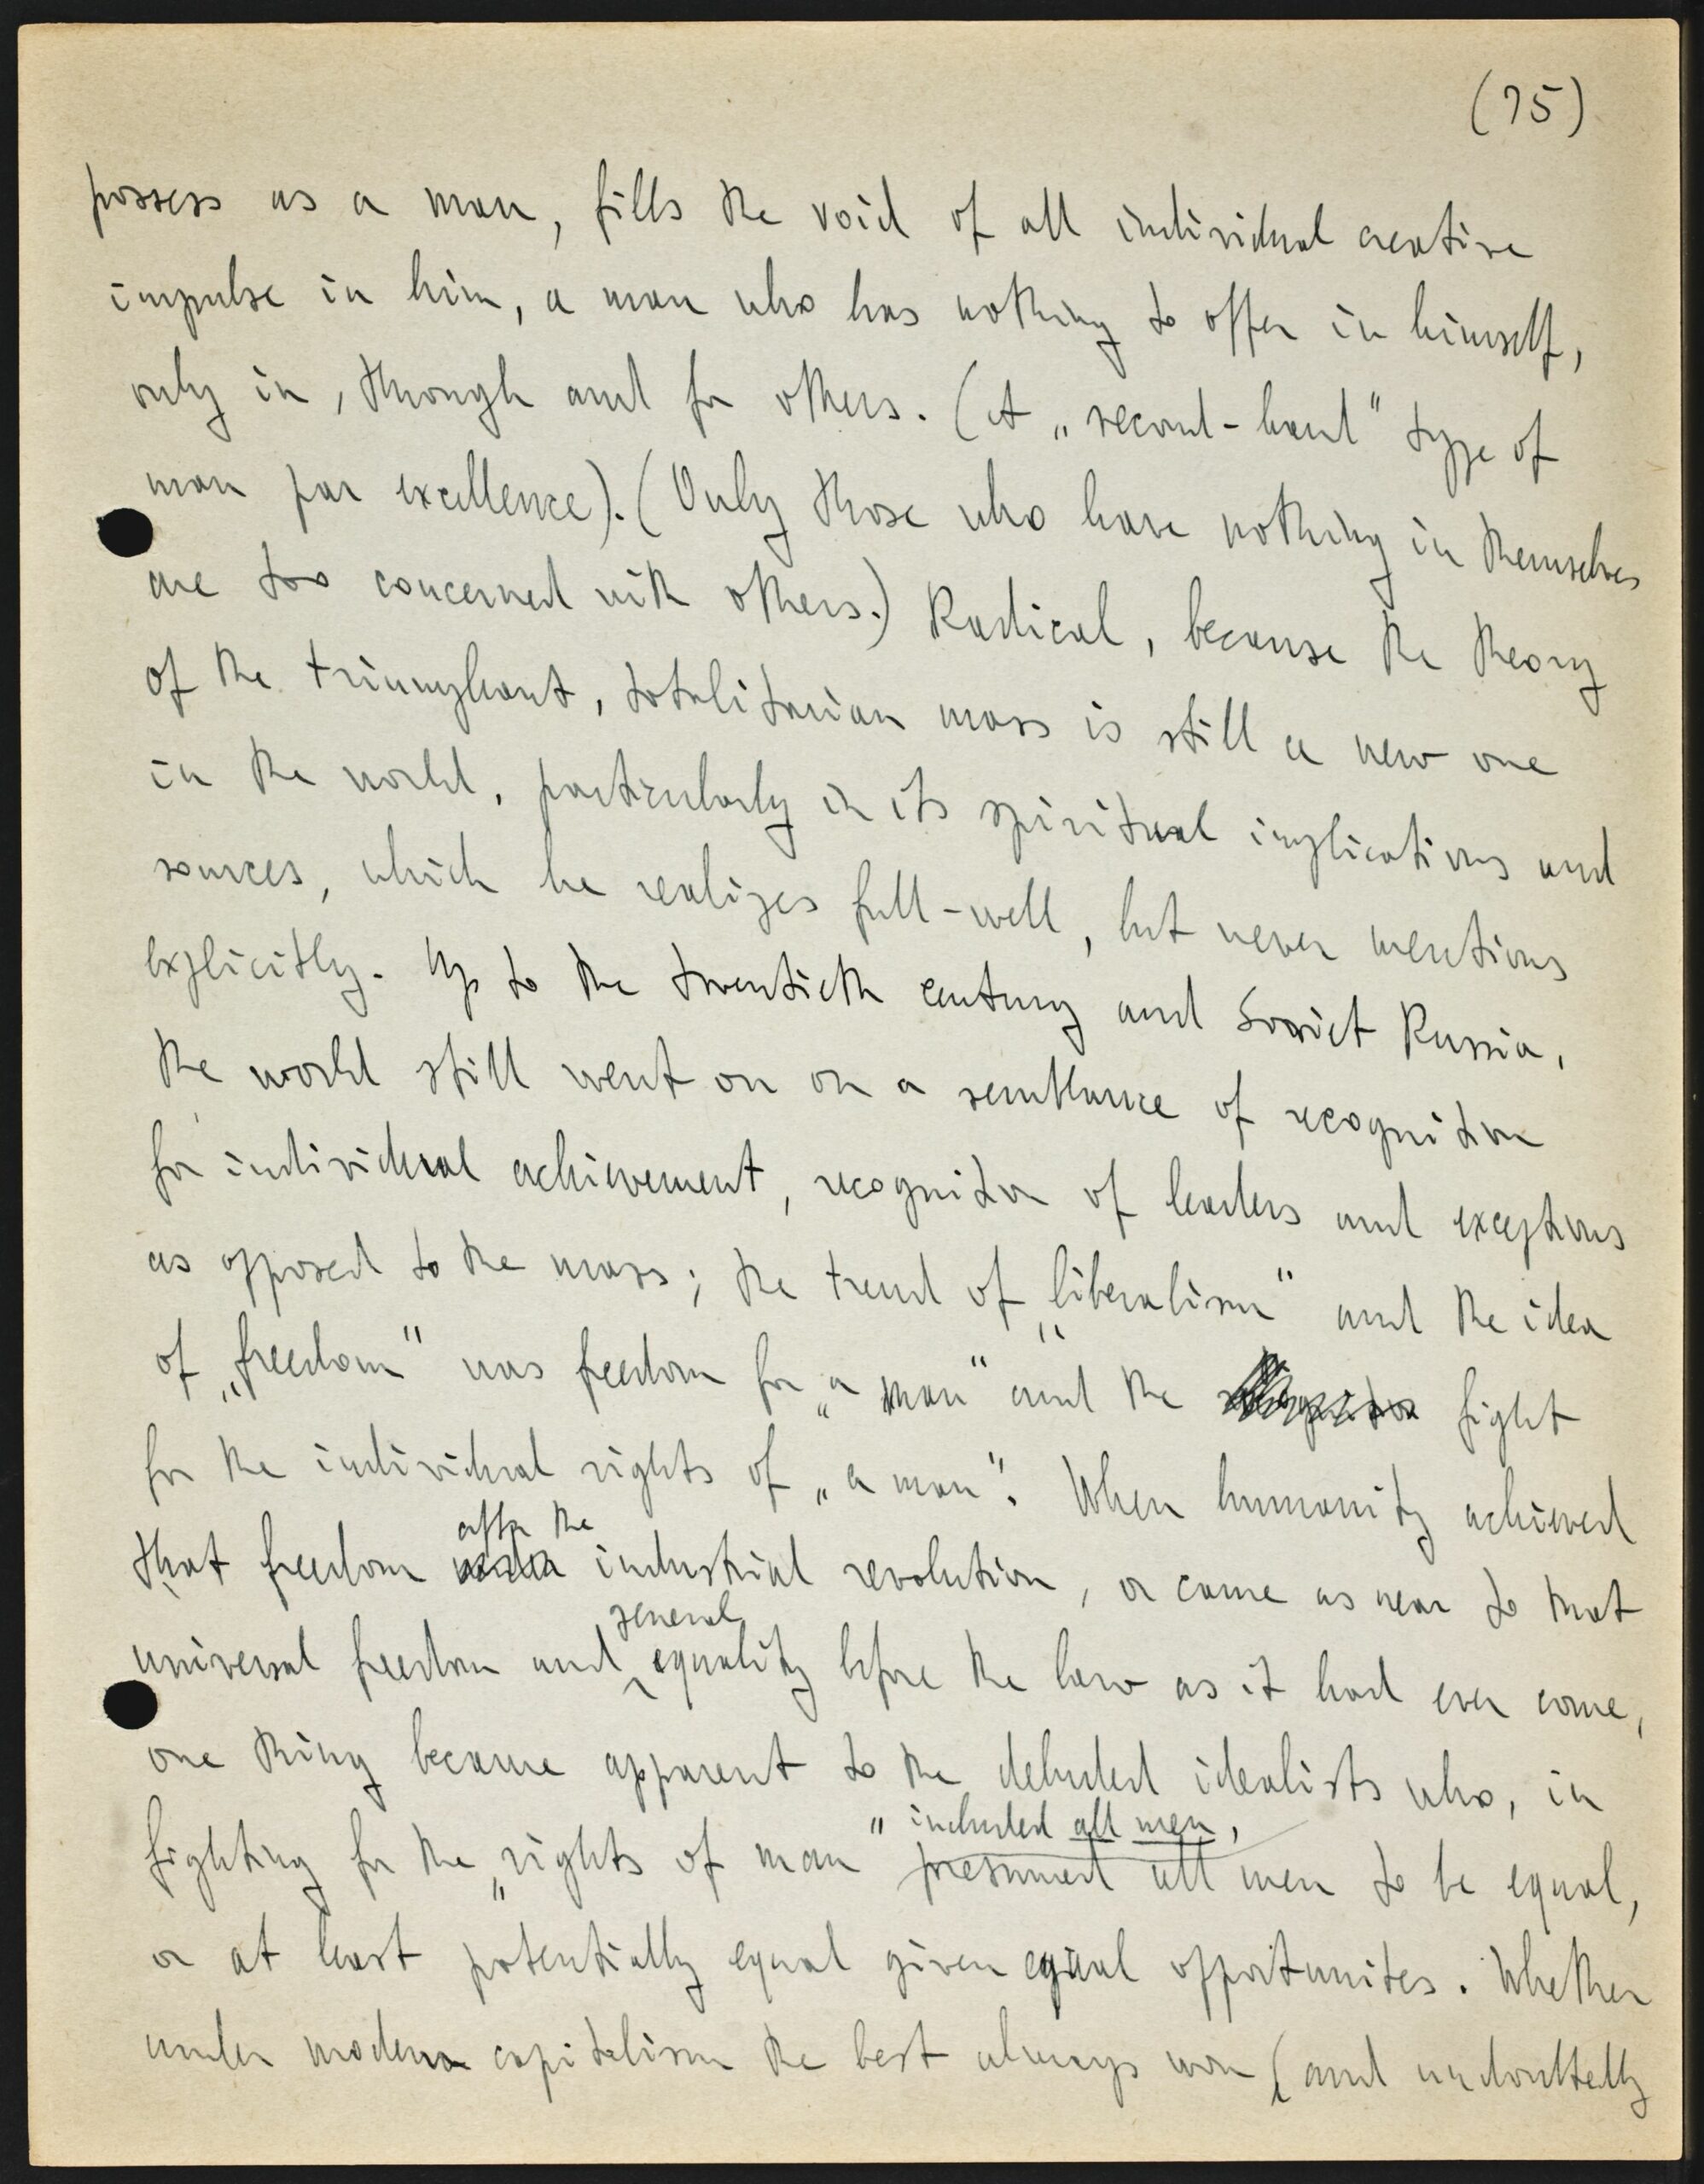 (75)
possess as a man, fills the void of all individual creative
impulse in him, a man who has nothing to offer in himself,
only in, through and for others. (A „second-hand" type of
man par excellence). (Only those who have nothing in themselves
are too concerned with others.) Radical, because the theory
of the triumphant, totalitarian mass is still a new one
in the world, particularly in its spiritual implications and
sources, which he realizes full-well, but never mentions
explicitly. Up to the twentieth century and Soviet Russia,
the world still went on on a semblance of recognition
for individual achievement, recognition of leaders and exceptions
as opposed to the mass; the trend of „liberalism" and the idea
of „freedom" was freedom for „a man" and the fight
for the individual rights of „a man". When humanity achieved
after the
that freedom industrial revolution, or came as near to that
general
universal freedom and equality before the law as it had ever come,
one thing became apparent to the deluded idealists who, in
included all men,
fighting for the „rights of man" presumed all men to be equal,
or at least potentially equal given equal opportunites. Whether
under modern capitalism the best always won (and undoubtedly